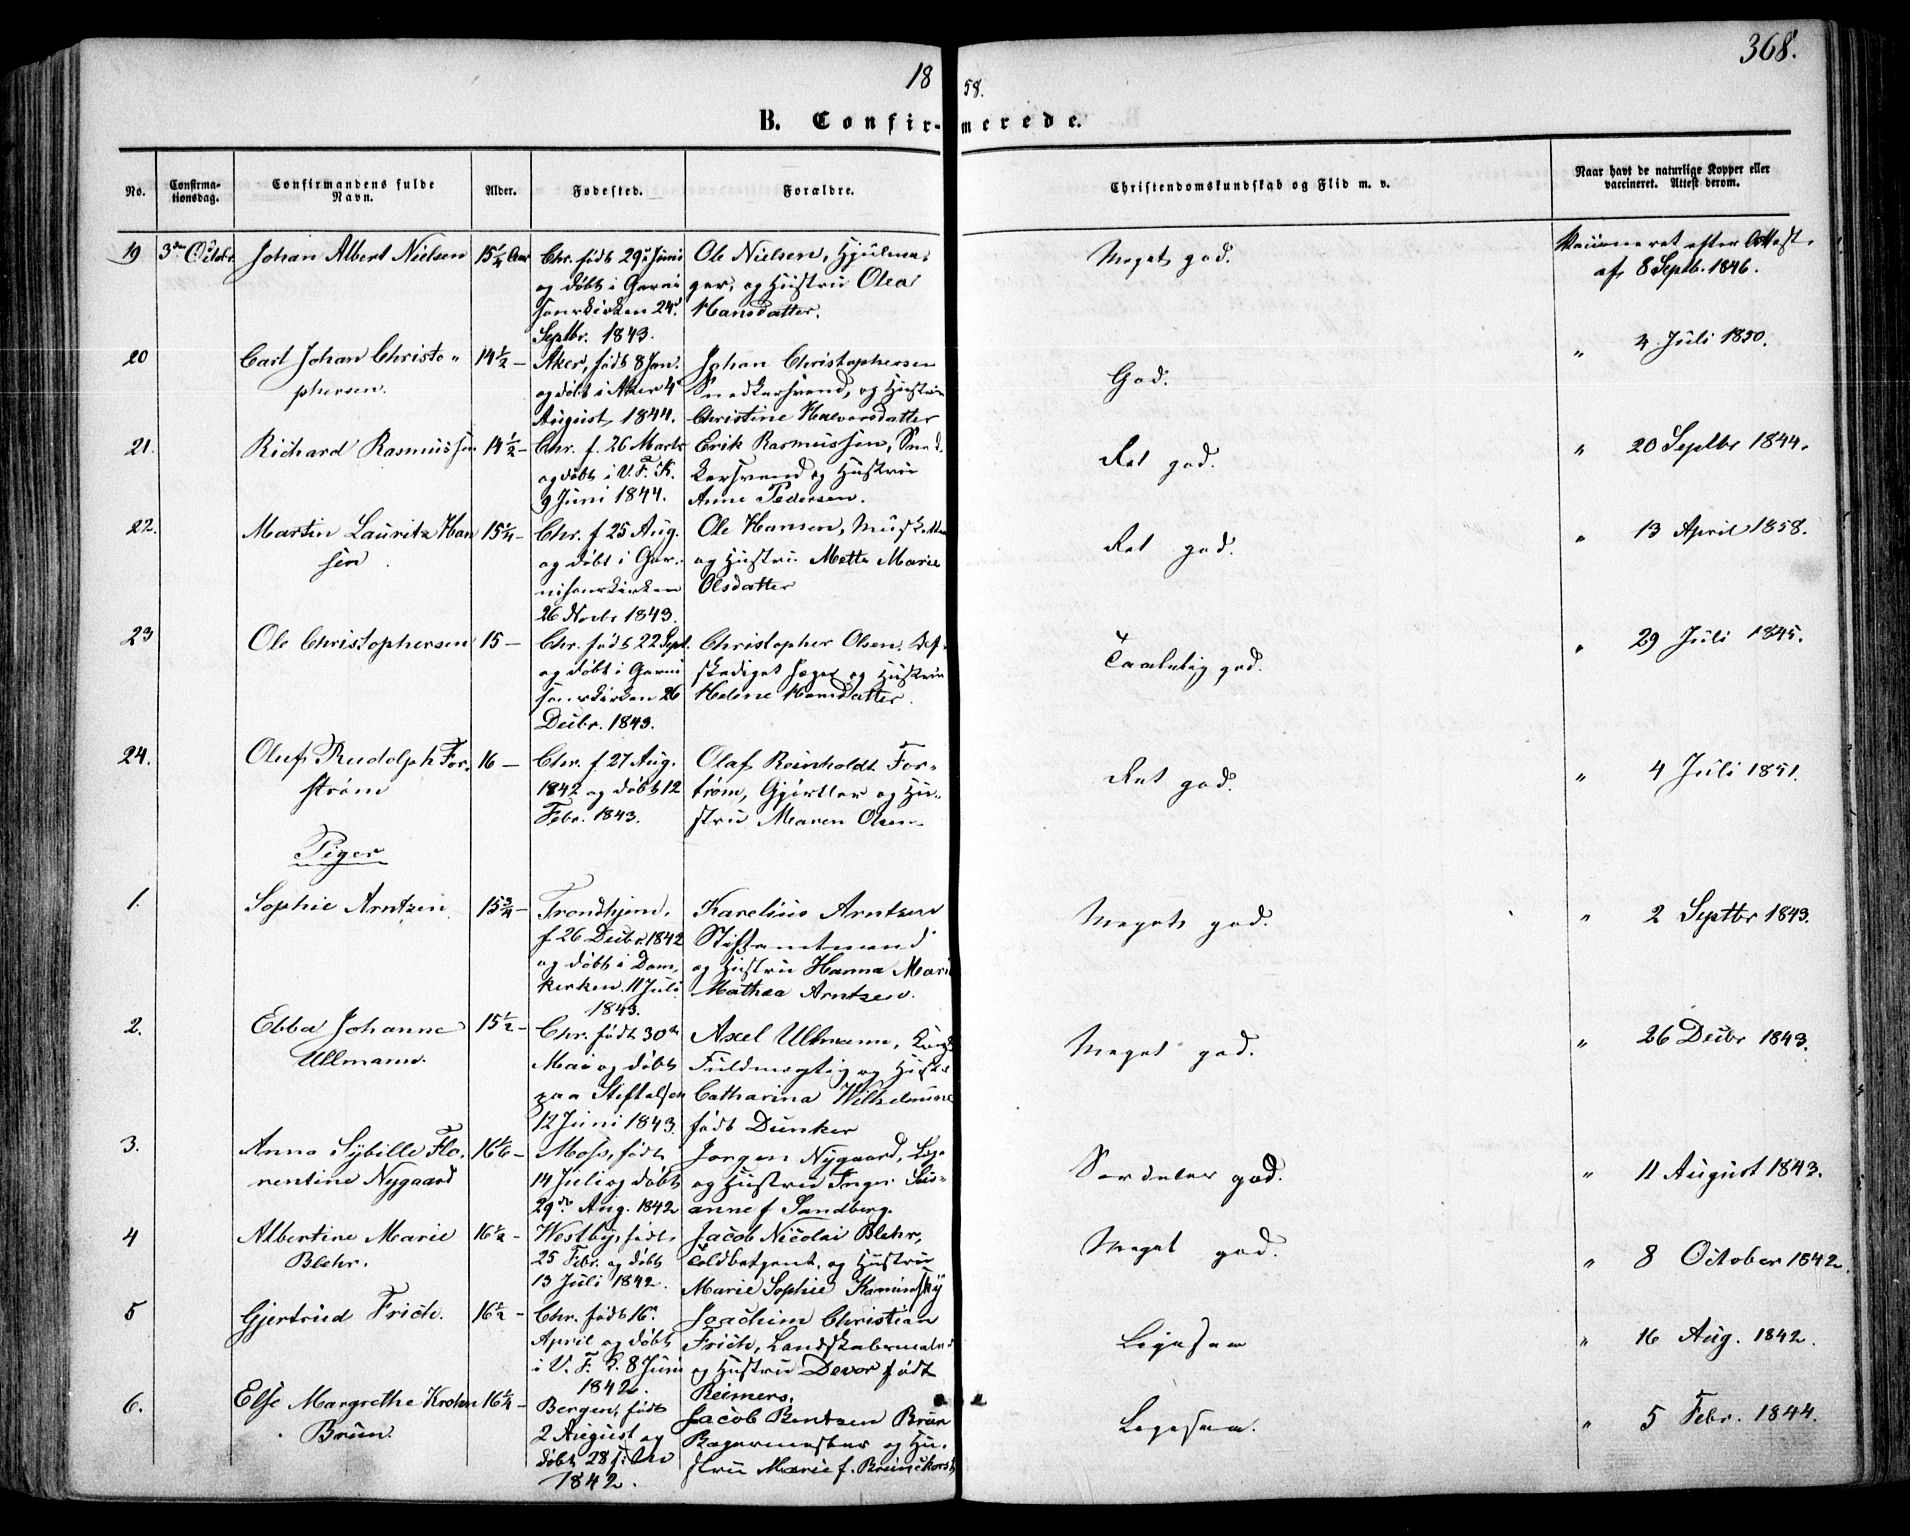 368.
1858.
B. Confirmerede.
No.
Confirmationsdag.
Confirmandens fulde Navn.
Alder.
Fødested.
Forældre.
Christendomskundskab og Flid m. v.
Naar havt de naturlige Kopper eller vaccineret. Attest derom.
19
3die Octbr
Johan Albert Nielsen
15 1/4 Aar
Chr. født 29 Juni
og døbt i Garni
sonskirken 24
Septbr. 1843.
Ole Nielsen, Hjulma-
ger, og Hustru Olea
Hansdatter.
Meget god.
Vaccineret efter Attest
af 8 Septb. 1846.
20
Carl Johan Christo-
phersen.
14 1/2 —
Aker, født 8 Jan.
og døbt i Aker 4
August 1844.
Johan Christophersen
Snedkersvend, og Hustru
Christine Halvorsdatter
God.
" 4 Juli 1850.
21.
Richard Rasmussen
14 1/2 —
Chr. f. 26 Marts
og døbt i V. F. K.
9 Juni 1844.
Erik Rasmussen, Sned-
kersvend og Hustru
Anne Pedersen.
Ret god.
" 20 Septbr 1844.
22.
Martin Lauritz Han
sen
15 1/4 —
Chr. f 25 Aug.
og døbt i Gar-
nisonskirken
26 Novbr 1843.
Ole Hansen, Musketeer
og Hustru Mette Marie
Olsdatter
Ret god.
" 13 April 1858.
23
Ole Christophersen
15 —
Chr. født 22 Sept.
og døbt i Garni
sonskirken 26
Decbr. 1843.
Christopher Olsen, Af-
skediget Jæger og Hustru
Helene Hansdatter.
Taalelig god.
" 29 Juli 1845.
24.
Oluf Rudolph For-
strøm
16 —
Chr. f 27 Aug.
1842 og døbt 12
Febr. 1843.
Olaf Reinholdt For-
trøm, Gjørtler og Hu-
stru Maren Olsen
Ret god.
" 4 Juli 1851.
Piger
1.
Sophie Arntzen
15 3/4 —
Trondhjem,
f 26 Decbr 1842
og døbt i Dom-
kirken 11 Juli
1843.
Karelius Arntzen
Stiftamtmand
og Hustru Hanna Marie
Mathea Arntzen.
Meget god.
" 2 Septbr 1843.
2.
Ebba Johanne
Ullmann.
15 1/2 —
Chr. født 30te
Mai og døbt
paa Stiftelsen
12 Juni 1843.
Axel Ullmann,
Fuldmegtig og Hustru
Catharina Wilhelmine
født Dunker
Meget god.
" 26 Decbr 1843.
3.
Anna Sybille Flo-
rentine Nygaard
16 1/6 —
Moss, født
14 Juli og døbt
29de Aug. 1842
Jørgen Nygaard,
og Hustru Inger Sus-
anne f Sandberg.
Særdeles god.
" 11 August 1843.
4
Albertine Marie
Blehr.
16 1/2 —
Westby, født
25 Febr. og døbt
13 Juli 1842.
Jacob Nicolai Blehr,
Toldbetjent, og Hustru
Marie Sophie Kaminsky
Meget god.
" 8 October 1842.
5
Gjertrud Frich.
16 1/2 —
Chr. født 16
April og døbt
i V. F. K. 8 Juni
1842.
Joachim Christian
Frich, Landskabsmaler
og Hustru Devor født
Reimers.
Ligesaa
" 16 Aug. 1842.
6.
Else Margrethe Krohn
Brun
16 1/4 —
Bergen, født
2 August og
døbt 28
1842.
Jacob Bentzen Brun
Bagermester og Hu-
stru Marie f.
Ligesaa.
" 5 Febr. 1844.